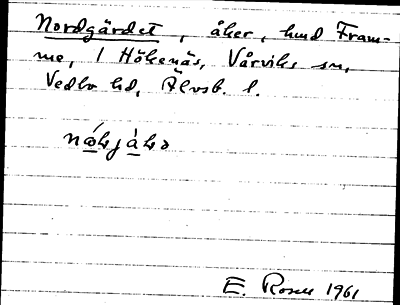 Nordgärdet, åker, hmd Fram-
me, 1 Hökenäs, Vårviks sn,
Vedbo hd, Älvsb. l.
E. Rosell 1961